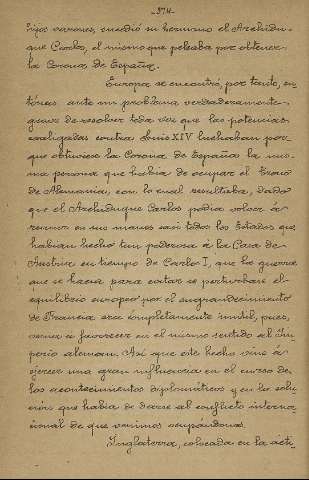 -374-
hijos varones, sucedió su hermano el Archidu-
que Carlos, el mismo que peleaba por obtener
la Corona de España.
Europa se encontró, por tanto, en-
tónces ante un problema verdaderamente
grave de resolver toda vez que las potencias
coaligadas contra Luis XIV luchaban por-
que obtuviese la Corona de España la mis-
ma persona que había de ocupar el trono
de Alemania, con lo cual resultaba, dado
que el Archiduque Carlos podía volver á
reunir en sus manos casi todos los Estados que
habían hecho tan poderosa á la Casa de
Austria en tiempo de Carlos I, que la guerra
que se hacía para evitar se perturbara el
equilibrio europeo por el engrandecimiento
de Francia era completamente inútil, pues,
venía a favorecer en el mismo sentido al Im-
perio aleman. Así que este hecho vino á
ejercer una gran influencia en el curso de
los acontecimientos diplomáticos y en la solu-
ción que había de darse al conflicto interna-
cional de que venimos ocupándonos.
Inglaterra, colocada en la acti-